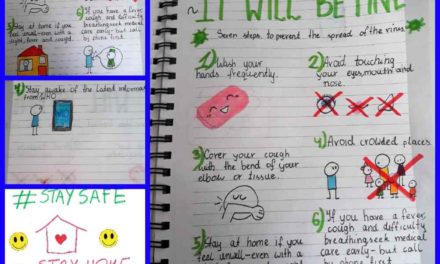 5) Stay at home if you
feel unwell-even with a
6) If you have a fever,
cough and difficulty
breathing seek medical
care early-but call
by phone first
Stay awake of the latest informat
from WHO
#STAY SAFE
STAY HOME
IT WILL BE FINE
Seven steps to prevent the spread of the virus
1) Wash your
hands frequently.
2) Avoid touching
your eyes, mouth and
nose.
3) Cover your cough
with the bend of your
elbow or tissue.
4) Avoid crowded places
5) Stay at home if you
feel unwell-even with a
6) If you have a fever,
cough and difficulty
breathing seek medical
care early-but call
by phone first